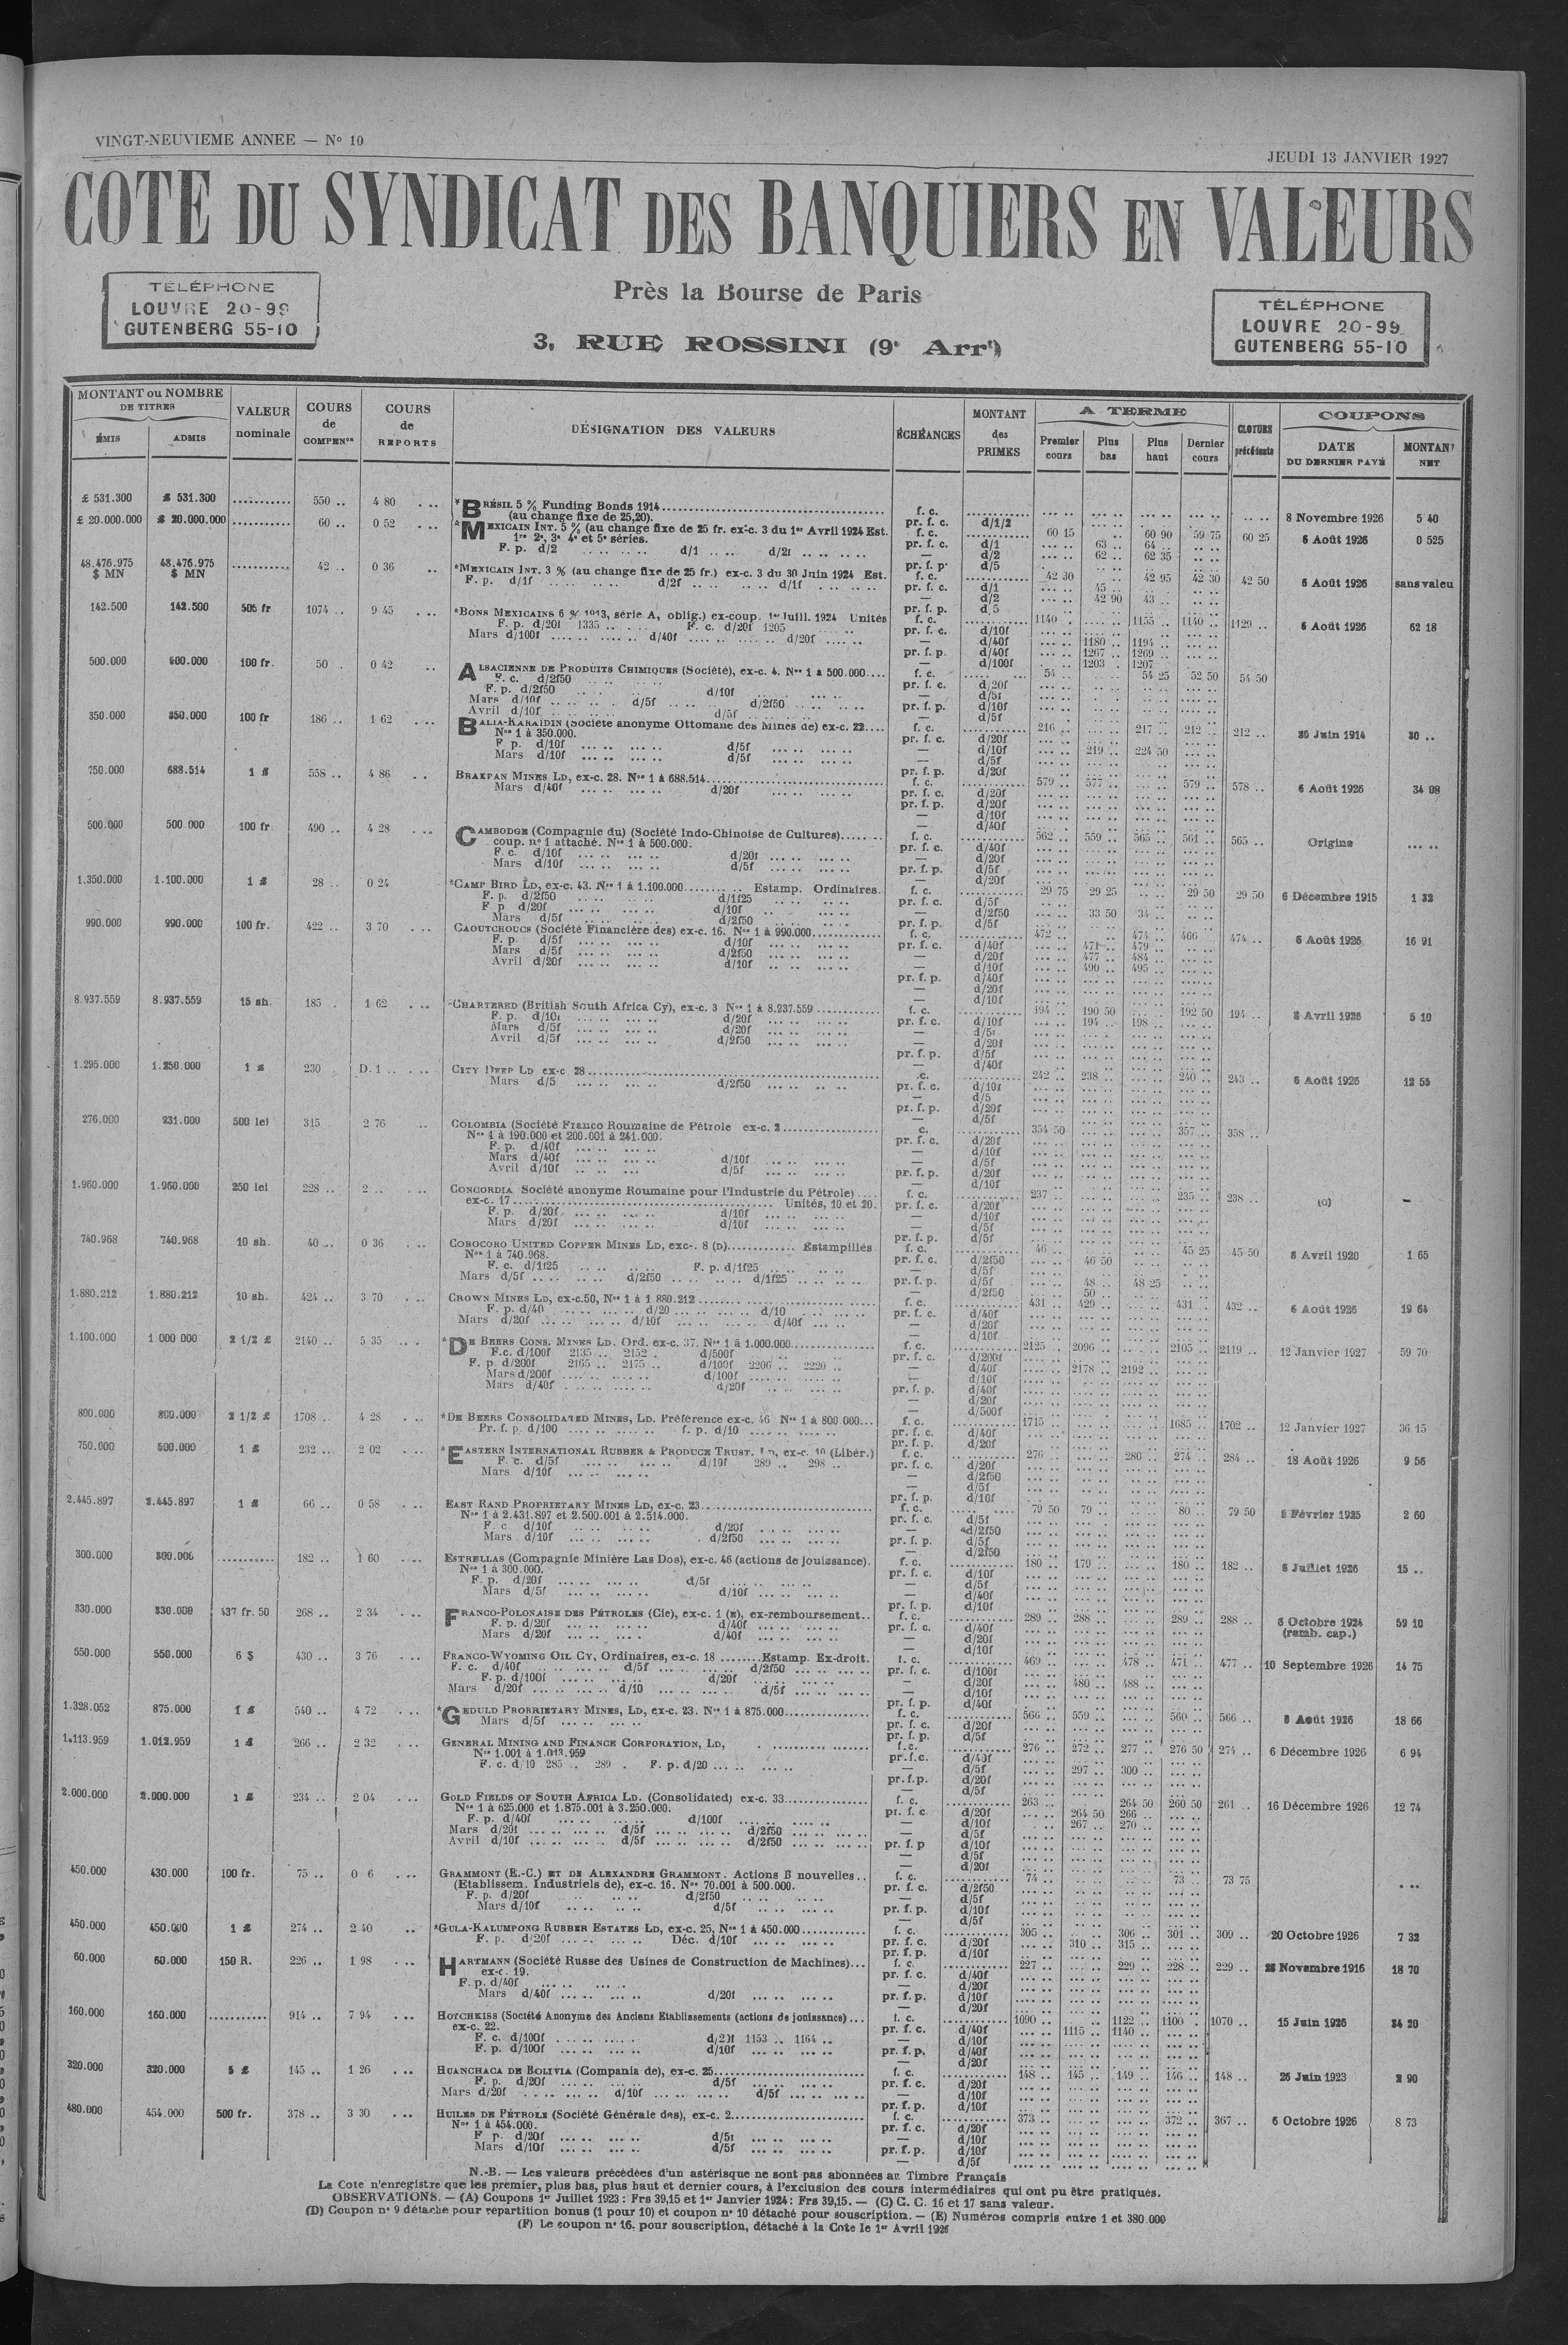 VINGT-NEUVIEME ANNEE — Nº 10
JEUDI 13 JANVIER 1927
COTE DU SYNDICAT DES BANQUIERS EN VALEURS
TÉLÉPHONE
LOUVRE 20-99
GUTENBERG 55-10
Près la Bourse de Paris
3, RUE ROSSINI (9e Arrt)
TÉLÉPHONE
LOUVRE 20-99
GUTENBERG 55-10
MONTANT ou NOMBRE DE TITRES
ÉMIS ADMIS
VALEUR nominale
COURS de COMPENon
COURS de REPORTS
DÉSIGNATION DES VALEURS
ÉCHÉANCES
MONTANT des PRIMES
A TERME
Premier cours Plus bas Plus haut Dernier cours
CLOTURE précédente
COUPONS
DATE DU DERNIER PAYÉ
MONTANT NET
£ 531.300 £ 531.300 550 .. 4 80 *BRÉSIL 5 % Funding Bonds 1914 f. c. 8 Novembre 1926 5 40
(au change fixe de 25,20). pr. f. c. d/1/2
£ 20.000.000 £ 20.000.000 60 .. 0 52 *MEXICAIN INT. 5 % (au change fixe de 25 fr. ex-c. 3 du 1er Avril 1924 Est. f. c. 60 15 60 90 59 75 60 25 6 Août 1926 0 525
1re 2e, 3e 4e et 5e séries. pr. f. c. d/1 63 .. 64 ..
F. p. d/2 d/1 — d/2 62 .. 62 35
pr. f. p. d/5
48.476.975 $ MN 48.476.975 $ MN 42 .. 0 36 *MEXICAIN INT. 3 % (au change fixe de 25 fr.) ex-c. 3 du 30 Juin 1924 Est. f. c. 42 30 42 95 42 30 42 50 6 Août 1926 sans valeu
F. p. d/1f d/2f d/1f pr. f. c. d/1 45 ..
— d/2 42 90 43 ..
142.500 142.500 505 fr 1074 .. 9 45 *BONS MEXICAINS 6 % 1913, série A, oblig.) ex-coup. 1er Juill. 1924 Unités f. c. 1140 .. 1155 .. 1140 .. 1129 .. 6 Août 1926 62 18
F. p. d/20f 1335 F. c. d/20f 1205 pr. f. c. d/10f
Mars d/100f d/40f d/20f — d/40f 1180 .. 1194 ..
pr. f. p. d/40f 1267 .. 1269 ..
— d/100f 1203 . 1207
500.000 500.000 100 fr. 50 . 0 42 ALSACIENNE DE PRODUITS CHIMIQUES (Société), ex-c. 4. Nos 1 à 500.000 f. c. 54 .. 54 25 52 50 54 50
F. c. d/2f50 pr. f. c. d/20f
F. p. d/2f50 d/10f — d/5f
Mars d/10f d/5f d/2f50 pr. f. p. d/10f
Avril d/10f d/5f — d/5f
350.000 350.000 100 fr 186 .. 1 62 BALIA-KARAÏDIN (Société anonyme Ottomane des Mines de) ex-c. 22 f. c. 216 .. 217 .. 212 .. 212 .. 30 Juin 1914 20 ..
Nos 1 à 350.000. pr. f. c. d/20f
F p. d/10f d/5f — d/10f 219 .. 224 50
Mars d/10f d/5f — d/5f
pr. f. p. d/20f
750.000 688.514 1 £ 558 .. 4 86 BRAKPAN MINES LD, ex-c. 28. Nos 1 à 688.514 f. c. 579 .. 577 .. 579 .. 578 .. 6 Août 1926 34 08
Mars d/40f d/20f pr. f. c. d/20f
pr. f. p. d/20f
— d/10f
— d/40f
500.000 500.000 100 fr 490 .. 4 28 CAMBODGE (Compagnie du) (Société Indo-Chinoise de Cultures) f. c. 562 .. 559 .. 565 .. 561 .. 565 .. Origine
coup. nº 1 attaché. Nos 1 à 500.000. pr. f. c. d/40f
F. c. d/10f d/20f — d/20f
Mars d/10f d/5f pr. f. p. d/5f
— d/20f
1.350.000 1.100.000 1 £ 28 .. 0 24 *CAMP BIRD LD, ex-c. 43. Nos 1 à 1.100.000 Estamp. Ordinaires. f. c. 29 75 29 25 29 50 29 50 6 Décembre 1915 1 32
F. p. d/2f50 d/1f25 pr. f. c. d/5f
F p d/20f d/10f — d/2f50 33 50 34 ..
Mars d/5f d/2f50 pr. f. p. d/5f
990.000 990.000 100 fr. 422 .. 3 70 CAOUTCHOUCS (Société Financière des) ex-c. 16. Nos 1 à 990.000 f. c. 472 .. 474 .. 466 474 .. 6 Août 1926 16 91
F. p. d/5f d/10f pr. f. c. d/40f 471 .. 479 ..
Mars d/5f d/2f50 — d/20f 477 .. 484 ..
Avril d/20f d/10f — d/10f 490 .. 495 ..
pr. f. p. d/40f
— d/20f
— d/10f
8.937.559 8.937.559 15 sh. 185 . 1 62 CHARTERED (British South Africa Cy), ex-c. 3 Nos 1 à 8.937.559 f. c. 194 .. 190 50 192 50 194 .. 8 Avril 1926 5 10
F. p. d/10f d/20f pr. f. c. d/10f 194 .. 198 ..
Mars d/5f d/20f — d/5f
Avril d/5f d/2f50 — d/20f
pr. f. p. d/5f
— d/40f
1.295.000 1.250.000 1 £ 230 D. 1 .. CITY DEEP LD ex-c 28 .c. 242 .. 238 .. 240 .. 243 .. 6 Août 1926 12 55
Mars d/5 d/2f50 pr. f. c. d/10f
— d/5
pr. f. p. d/20f
— d/5f
276.000 231.000 500 lei 315 2 76 COLOMBIA (Société Franco Roumaine de Pétrole ex-c. 2 c. 354 50 357 .. 358 ..
Nos 1 à 190.000 et 200.001 à 241.000. pr. f. c. d/20f
F. p. d/40f — d/10f
Mars d/40f d/10f — d/5f
Avril d/10f d/5f pr. f. p. d/20f
— d/10f
1.960.000 1.960.000 250 lei 228 .. 2 .. CONCORDIA Société anonyme Roumaine pour l'Industrie du Pétrole) f. c. 237 235 .. 238 .. (C) —
ex-c. 17 Unités, 10 et 20. pr. f. c. d/20f
F. p. d/20f d/10f — d/10f
Mars d/20f d/10f — d/5f
pr. f. p. d/5f
740.968 740.968 10 sh. 40 .. 0 36 COROCORO UNITED COPPER MINES LD, exc-. 8 (D) Estampillés f. c. 46 45 25 45 50 8 Avril 1920 1 65
Nos 1 à 740.968. pr. f. c. d/2f50 46 50
F. c. d/1f25 F. p. d/1f25 — d/5f
Mars d/5f d/2f50 d/1f25 pr. f. p. d/5f 48 .. 48 25
— d/2f50 50
1.880.212 1.880.212 10 sh. 424 .. 3 70 CROWN MINES LD, ex-c.50, Nos 1 à 1 880.212 f. c. 431 .. 429 .. 431 .. 432 .. 6 Août 1926 19 64
F. p. d/40 d/20 d/10 pr. f. c. d/40f
Mars d/20f d/10f d/40f — d/20f
— d/10f
1.100.000 1 000 000 2 1/2 £ 2140 .. 5 35 *DE BEERS CONS. MINES LD. Ord. ex-c. 37. Nos 1 à 1.000.000 f. c. 2125 .. 2096 .. 2105 .. 2119 .. 12 Janvier 1927 59 70
F.c. d/100f 2135 .. 2152 . d/500f pr. f. c. d/200f
F. p. d/200f 2165 .. 2175 .. d/100f 2206 .. 2220 .. — d/40f 2178 .. 2192 ..
Mars d/200f d/100f — d/10f
Mars d/40f d/20f pr. f. p. d/40f
— d/20f
— d/500f
800.000 800.000 2 1/2 £ 1708 .. 4 28 *DE BEERS CONSOLIDATED MINES, LD. Préférence ex-c. 46 Nos 1 à 800.000 f. c. 1715 .. 1685 .. 1702 .. 12 Janvier 1927 36 15
Pr. f. p. d/100 f. p. d/10 pr. f. c. d/40f
pr. f. p. d/20f
750.000 500.000 1 £ 232 .. 2 02 *EASTERN INTERNATIONAL RUBBER & PRODUCE TRUST. LD, ex-c. 10 (Libér.) f. c. 276 280 .. 274 .. 284 .. 18 Août 1926 9 56
F. c. d/5f d/10f 289 .. 298 .. pr. f. c. d/20f
Mars d/10f — d/2f50
— d/5f
pr. f. p. d/10f
2.445.897 2.445.897 1 £ 66 .. 0 58 EAST RAND PROPRIETARY MINES LD, ex-c. 23 f. c. 79 50 79 .. 80 .. 79 50 5 Février 1925 2 60
Nos 1 à 2.431.897 et 2.500.001 à 2.514.000. pr. f. c. d/5f
F. c d/10f d/20f — d/2f50
Mars d/10f d/2f50 pr. f. p. d/5f
— d/2f50
300.000 300.000 182 .. 1 60 ESTRELLAS (Compagnie Minière Las Dos), ex-c. 46 (actions de jouissance). f. c. 180 .. 179 .. 180 .. 182 .. 6 Juillet 1926 15 ..
Nos 1 à 300.000. pr. f. c. d/10f
F. p. d/20f d/5f — d/5f
Mars d/5f d/10f — d/40f
pr. f. p. d/10f
330.000 330.000 437 fr. 50 268 .. 2 34 FRANCO-POLONAISE DES PÉTROLES (Cie), ex-c. 1 (E), ex-remboursement f. c. 289 .. 288 .. 289 .. 288 .. 6 Octobre 1924 59 10
F. p. d/20f d/40f pr. f. c. d/40f (remb. cap.)
Mars d/20f d/40f — d/20f
— d/10f
550.000 550.000 6 $ 430 .. 3 76 FRANCO-WYOMING OIL CY, Ordinaires, ex-c. 18 Estamp. Ex-droit. f. c. 469 478 .. 471 .. 477 .. 10 Septembre 1926 14 75
F. c. d/40f d/5f d/2f50 pr. f. c. d/100f
F. p. d/100f d/20f — d/20f 480 .. 488 ..
Mars d/20f d/10 d/5f — d/10f
pr. f. p. d/40f
1.328.052 875.000 1 £ 540 .. 4 72 *GEDULD PRORRIETARY MINES, LD, ex-c. 23. Nos 1 à 875.000 f. c. 566 .. 559 .. 560 .. 566 .. 6 Août 1926 18 66
Mars d/5f pr. f. c. d/20f
pr. f. p. d/5f
1.113.959 1.013.959 1 £ 266 .. 2 32 GENERAL MINING AND FINANCE CORPORATION, LD, f.c. 276 .. 272 .. 277 .. 276 50 274 .. 6 Décembre 1926 6 94
Nos 1.001 à 1.013.959 pr.f.c. d/40f
F. c. d/10 285 .. 289 . F. p. d/20 — d/5f 297 .. 300 ..
pr.f.p. d/20f
— d/5f
2.000.000 2.000.000 1 £ 234 .. 2 04 GOLD FIELDS OF SOUTH AFRICA LD. (Consolidated) ex-c. 33 f. c. 263 .. 264 50 260 50 261 .. 16 Décembre 1926 12 74
Nos 1 à 625.000 et 1.875.001 à 3.250.000. pr. f. c d/20f 264 50 266 ..
F. p. d/40f d/100f — d/10f 267 .. 270 ..
Mars d/20f d/5f d/2f50 — d/5f
Avril d/10f d/5f d/2f50 pr. f. p d/10f
— d/5f
— d/20f
450.000 430.000 100 fr. 75 .. 0 6 GRAMMONT (E.-C.) ET DE ALEXANDRE GRAMMONT. Actions B nouvelles f. c. 74 .. 73 .. 73 75
(Etablissem. Industriels de), ex-c. 16. Nos 70.001 à 500.000. pr. f. c. d/2f50
F. p. d/20f d/2f50 — d/5f
Mars d/10f d/5f pr. f. p. d/10f
— d/5f
450.000 450.000 1 £ 274 .. 2 40 *GULA-KALUMPONG RUBBER ESTATES LD, ex-c. 25, Nos 1 à 450.000 f. c. 305 .. 306 .. 301 .. 309 .. 20 Octobre 1926 7 32
F. p. d/20f Déc. d/10f pr. f. c. d/20f 310 .. 315 ..
pr. f. p. d/10f
60.000 60.000 150 R. 226 .. 1 98 HARTMANN (Société Russe des Usines de Construction de Machines) f. c. 227 .. 229 .. 228 .. 229 .. 28 Novembre 1916 18 70
ex-c. 19. pr. f. c. d/40f
F. p. d/40f — d/20f
Mars d/40f d/20f pr. f. p. d/10f
— d/20f
160.000 160.000 914 .. 7 94 HOTCHKISS (Société Anonyme des Anciens Etablissements (actions de jouissance) f. c. 1090 .. 1122 .. 1100 . 1070 .. 15 Juin 1926 34 20
ex-c. 22. pr. f. c. d/40f 1115 .. 1140 ..
F. c. d/100f d/20f 1153 .. 1164 .. — d/10f
F. p. d/100f d/10f pr. f. p. d/40f
— d/20f
320.000 320.000 5 £ 145 .. 1 26 HUANCHACA DE BOLIVIA (Compania de), ex-c. 25 f. c. 148 .. 145 .. 149 .. 146 .. 148 .. 26 Juin 1923 2 90
F. p. d/20f d/5f pr. f. c. d/20f
Mars d/20f d/10f d/5f — d/10f
pr. f. p. d/10f
480.000 454.000 500 fr. 378 .. 3 30 HUILES DE PÉTROLE (Société Générale des), ex-c. 2 f. c. 373 .. 372 .. 367 .. 6 Octobre 1926 8 73
Nos 1 à 454.000. pr. f. c. d/20f
F p. d/20f d/5f — d/10f
Mars d/10f d/5f pr. f. p. d/10f
— d/5f
N.-B. — Les valeurs précédées d'un astérisque ne sont pas abonnées au Timbre Français
La Cote n'enregistre que les premier, plus bas, plus haut et dernier cours, à l'exclusion des cours intermédiaires qui ont pu être pratiqués.
OBSERVATIONS. — (A) Coupons 1er Juillet 1923 : Frs 39,15 et 1er Janvier 1924 : Frs 39,15. — (C) C. C. 16 et 17 sans valeur.
(D) Coupon nº 9 détaché pour répartition bonus (1 pour 10) et coupon nº 10 détaché pour souscription. — (E) Numéros compris entre 1 et 380.000
(F) Le coupon nº 16, pour souscription, détaché à la Cote le 1er Avril 1926